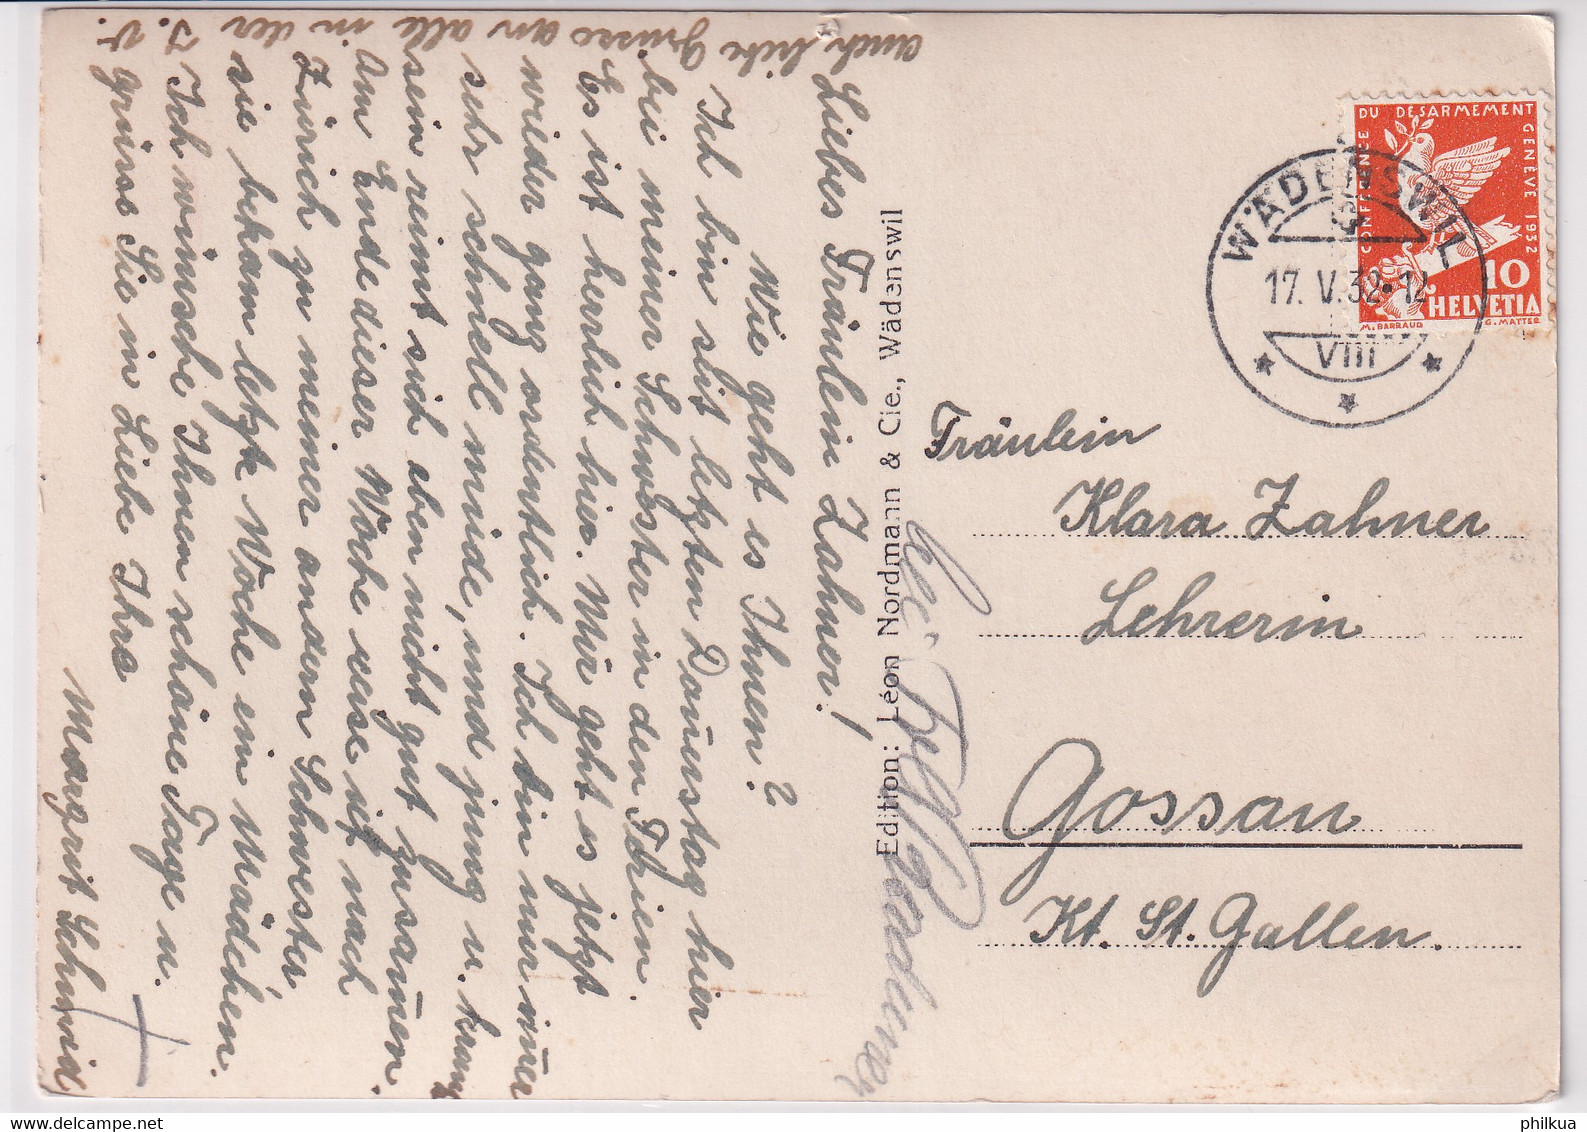 auch liebe Grüsse an alle in der J. v.
Liebes Fräulein Zahner!
Wie geht es Ihnen?
Ich bin seit letzten Donnerstag hier
bei meiner Schwester in den Ferien.
Es ist herrlich hier. Mir geht es jetzt
wieder ganz ordentlich. Ich bin nur immer
sehr schnell müde, und jung u. krank
sein reimt sich eben nicht gut zusammen.
Am Ende dieser Woche reise ich nach
Zürich zu meiner andern Schwester
sie bekam letzte Woche ein Mädchen.
Ich wünsche Ihnen schöne Tage u.
grüsse Sie in Liebe Ihre
Margrit Schmid
Edition: Léon Nordmann & Cie., Wädenswil
bei
CONFERENCE DU DESARMEMENT GENÈVE 1932
10
HELVETIA
M. BARRAUD
G. MATTER
WÄDENSWIL
17. V. 32 · 12
VIII
Fräulein
Klara Zahner
Lehrerin
Gossau
Kt. St. Gallen.
philkua